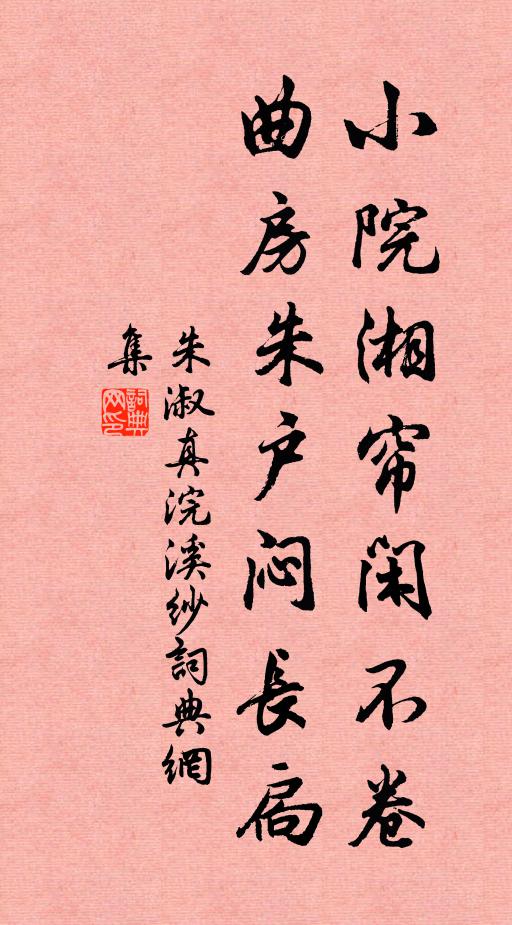 小院湘帘闲不卷
曲房朱户闷长扃
朱淑真浣溪纱詞典網
集
詞典
网印